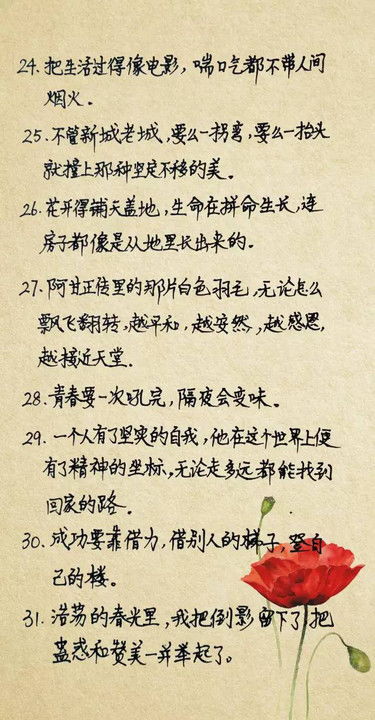 24. 把生活过得像电影，喘口气都不带人间
烟火。
25. 不管新城老城，要么一拐弯，要么一抬头
就撞上那种坚定不移的美。
26. 花开得铺天盖地，生命在拼命生长，连
房子都像是从地里长出来的。
27. 阿甘正传里的那片白色羽毛，无论怎么
飘飞翻转，越平和，越安然，越感恩，
越接近天堂.
28. 青春要一次吼完，隔夜会变味。
29. 一个人有了坚实的自我，他在这个世界上便
有了精神的坐标，无论走多远都能找到
回家的路。
30. 成功要靠借力，借别人的梯子，登自
己的楼。
31. 浩荡的春光里，我把倒影留下了，把
蛊惑和赞美一并举起了。